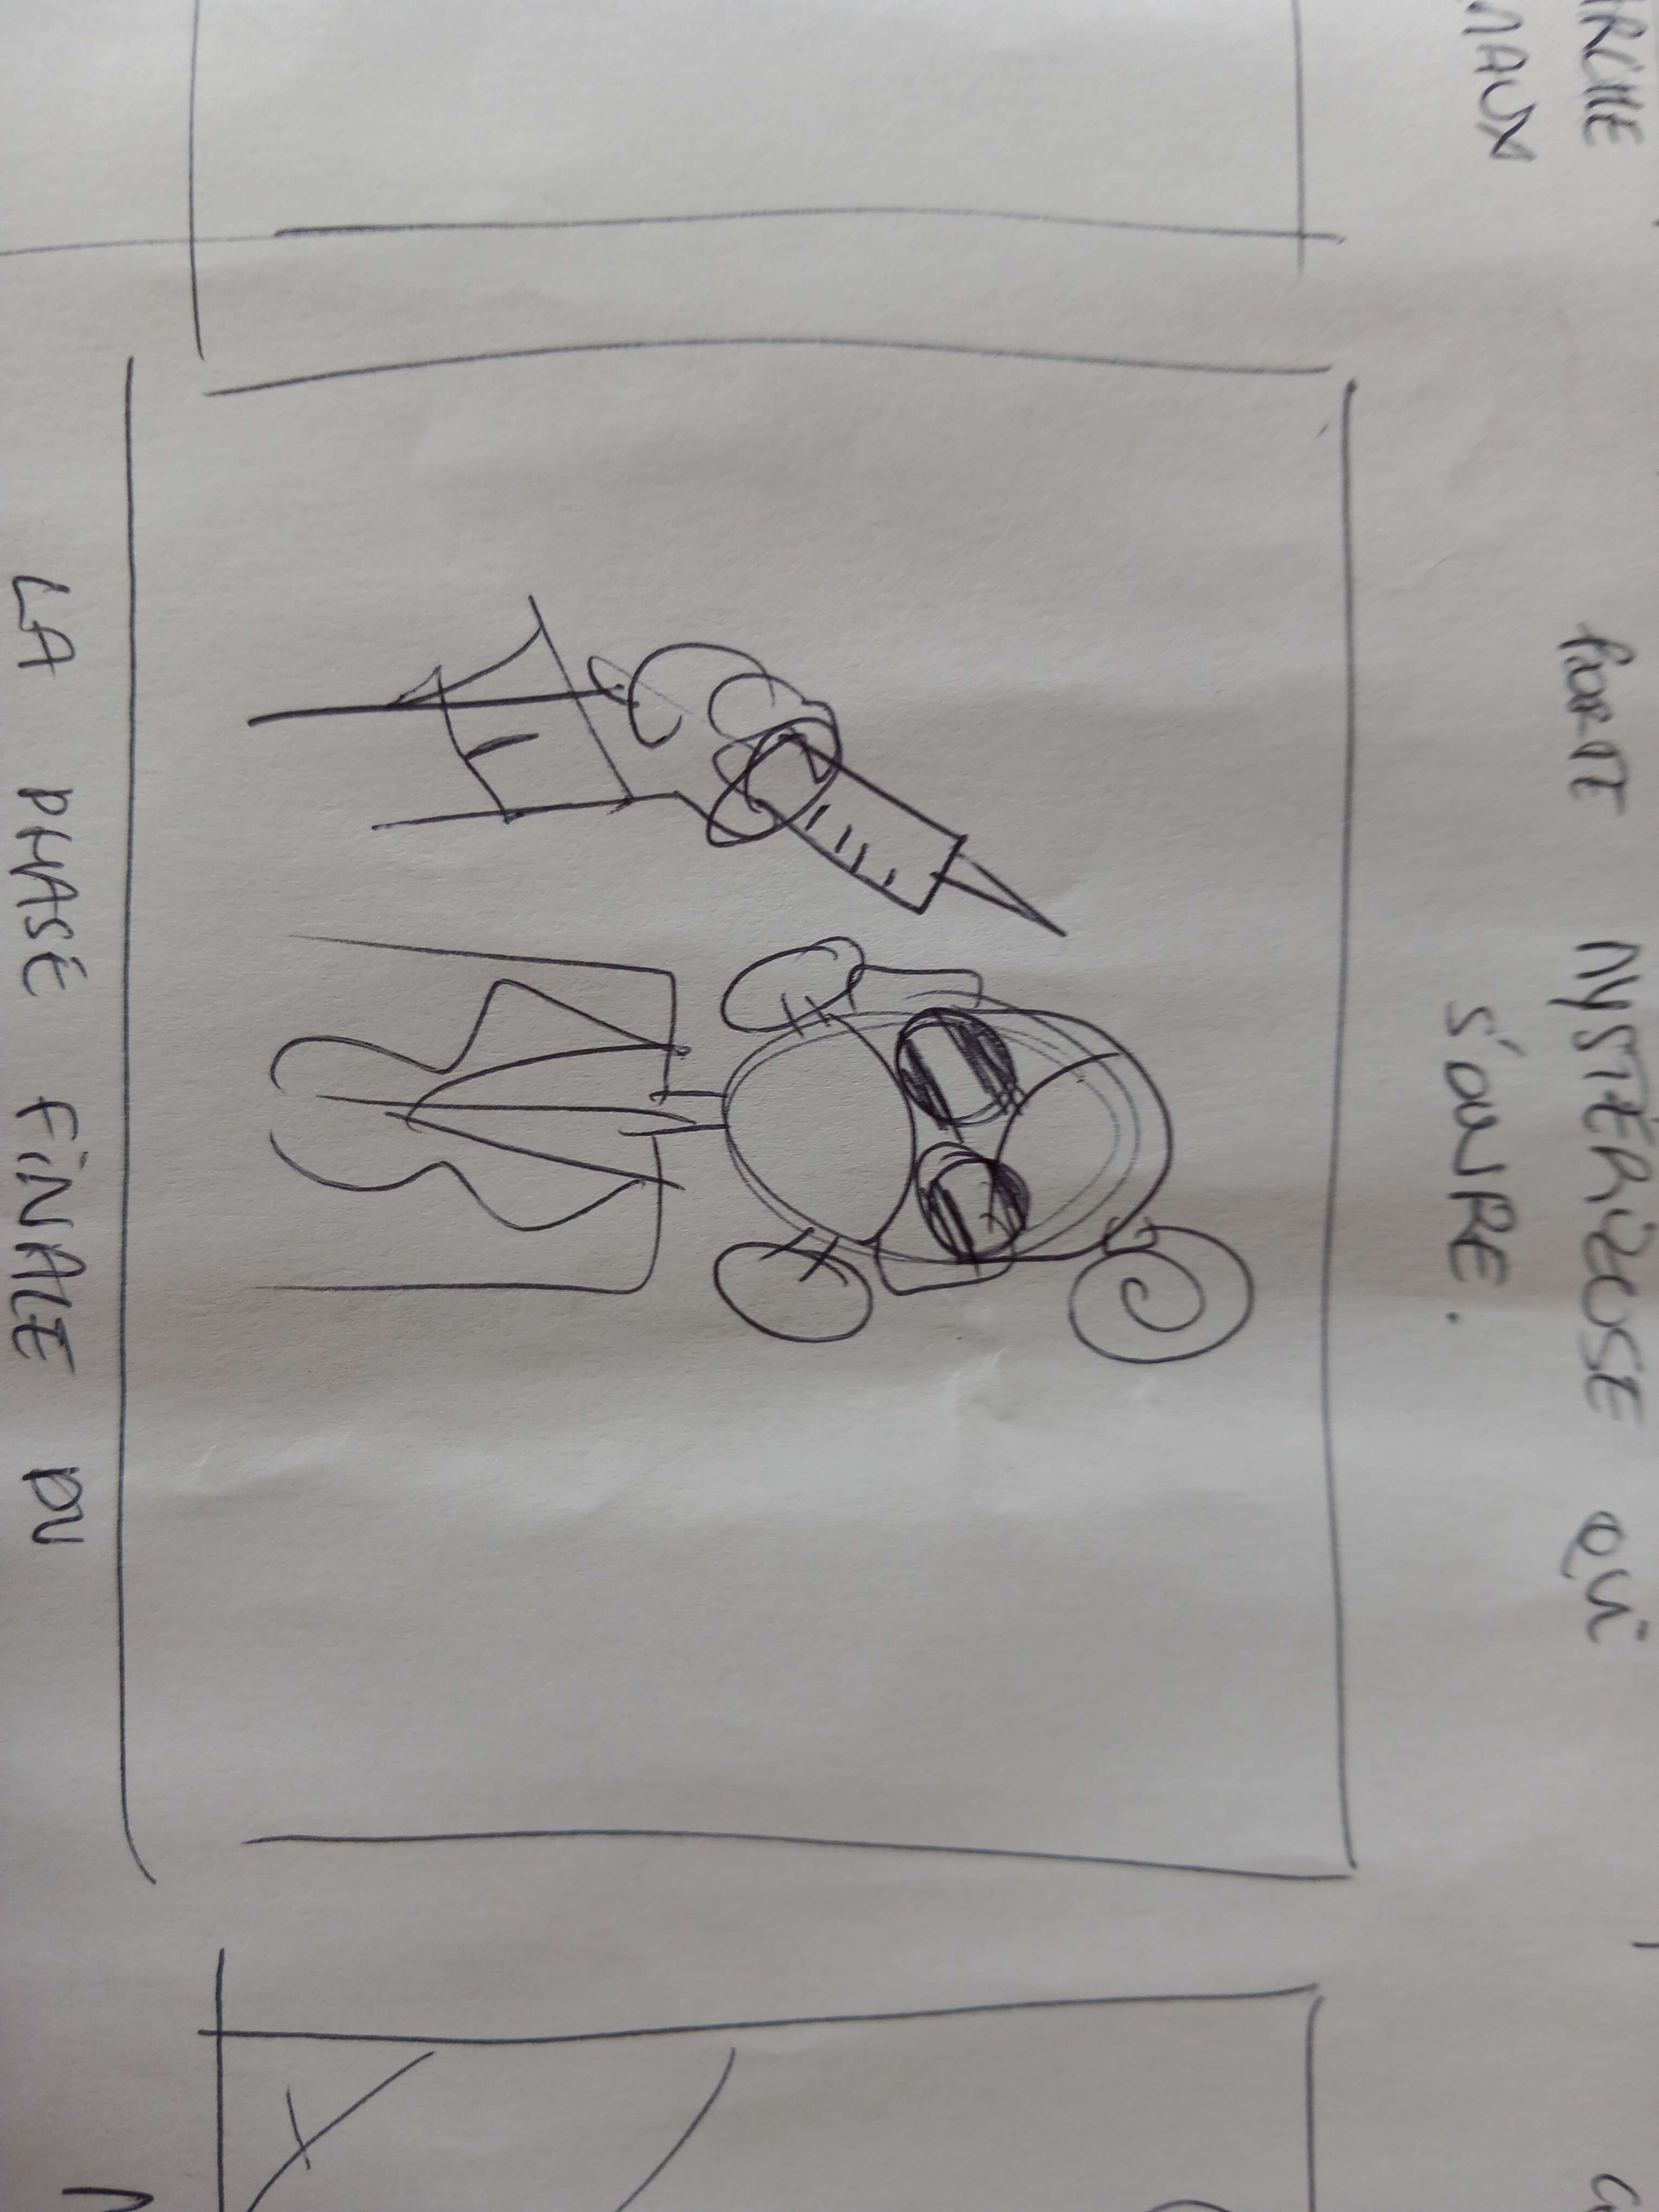 PORTE MYSTÉRIEUSE QUI
S'OUVRE.
LA PHASE FINALE DU